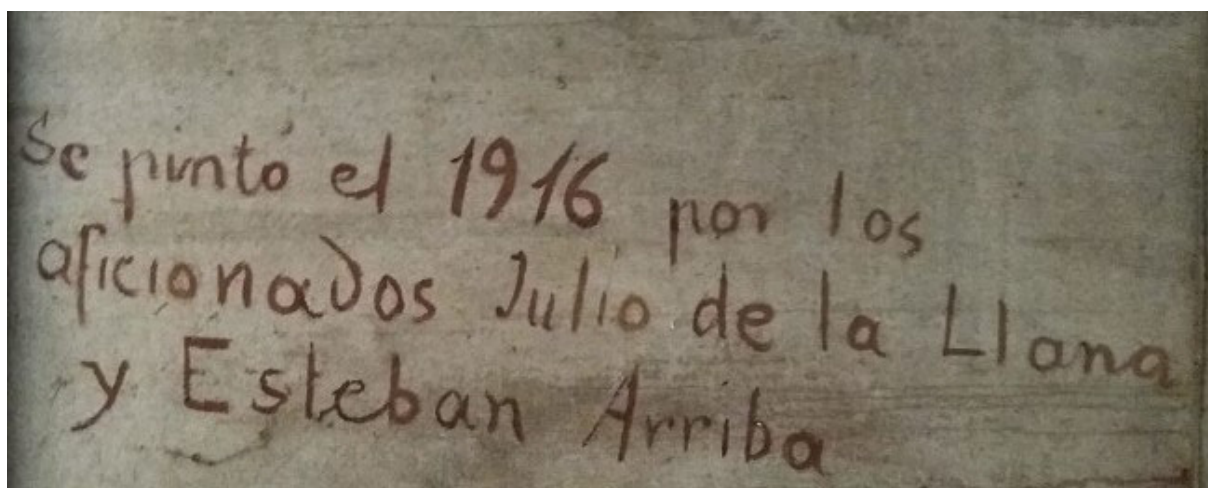 Se pintó el 1916 por los
aficionados Julio de la Llana
y Esteban Arriba